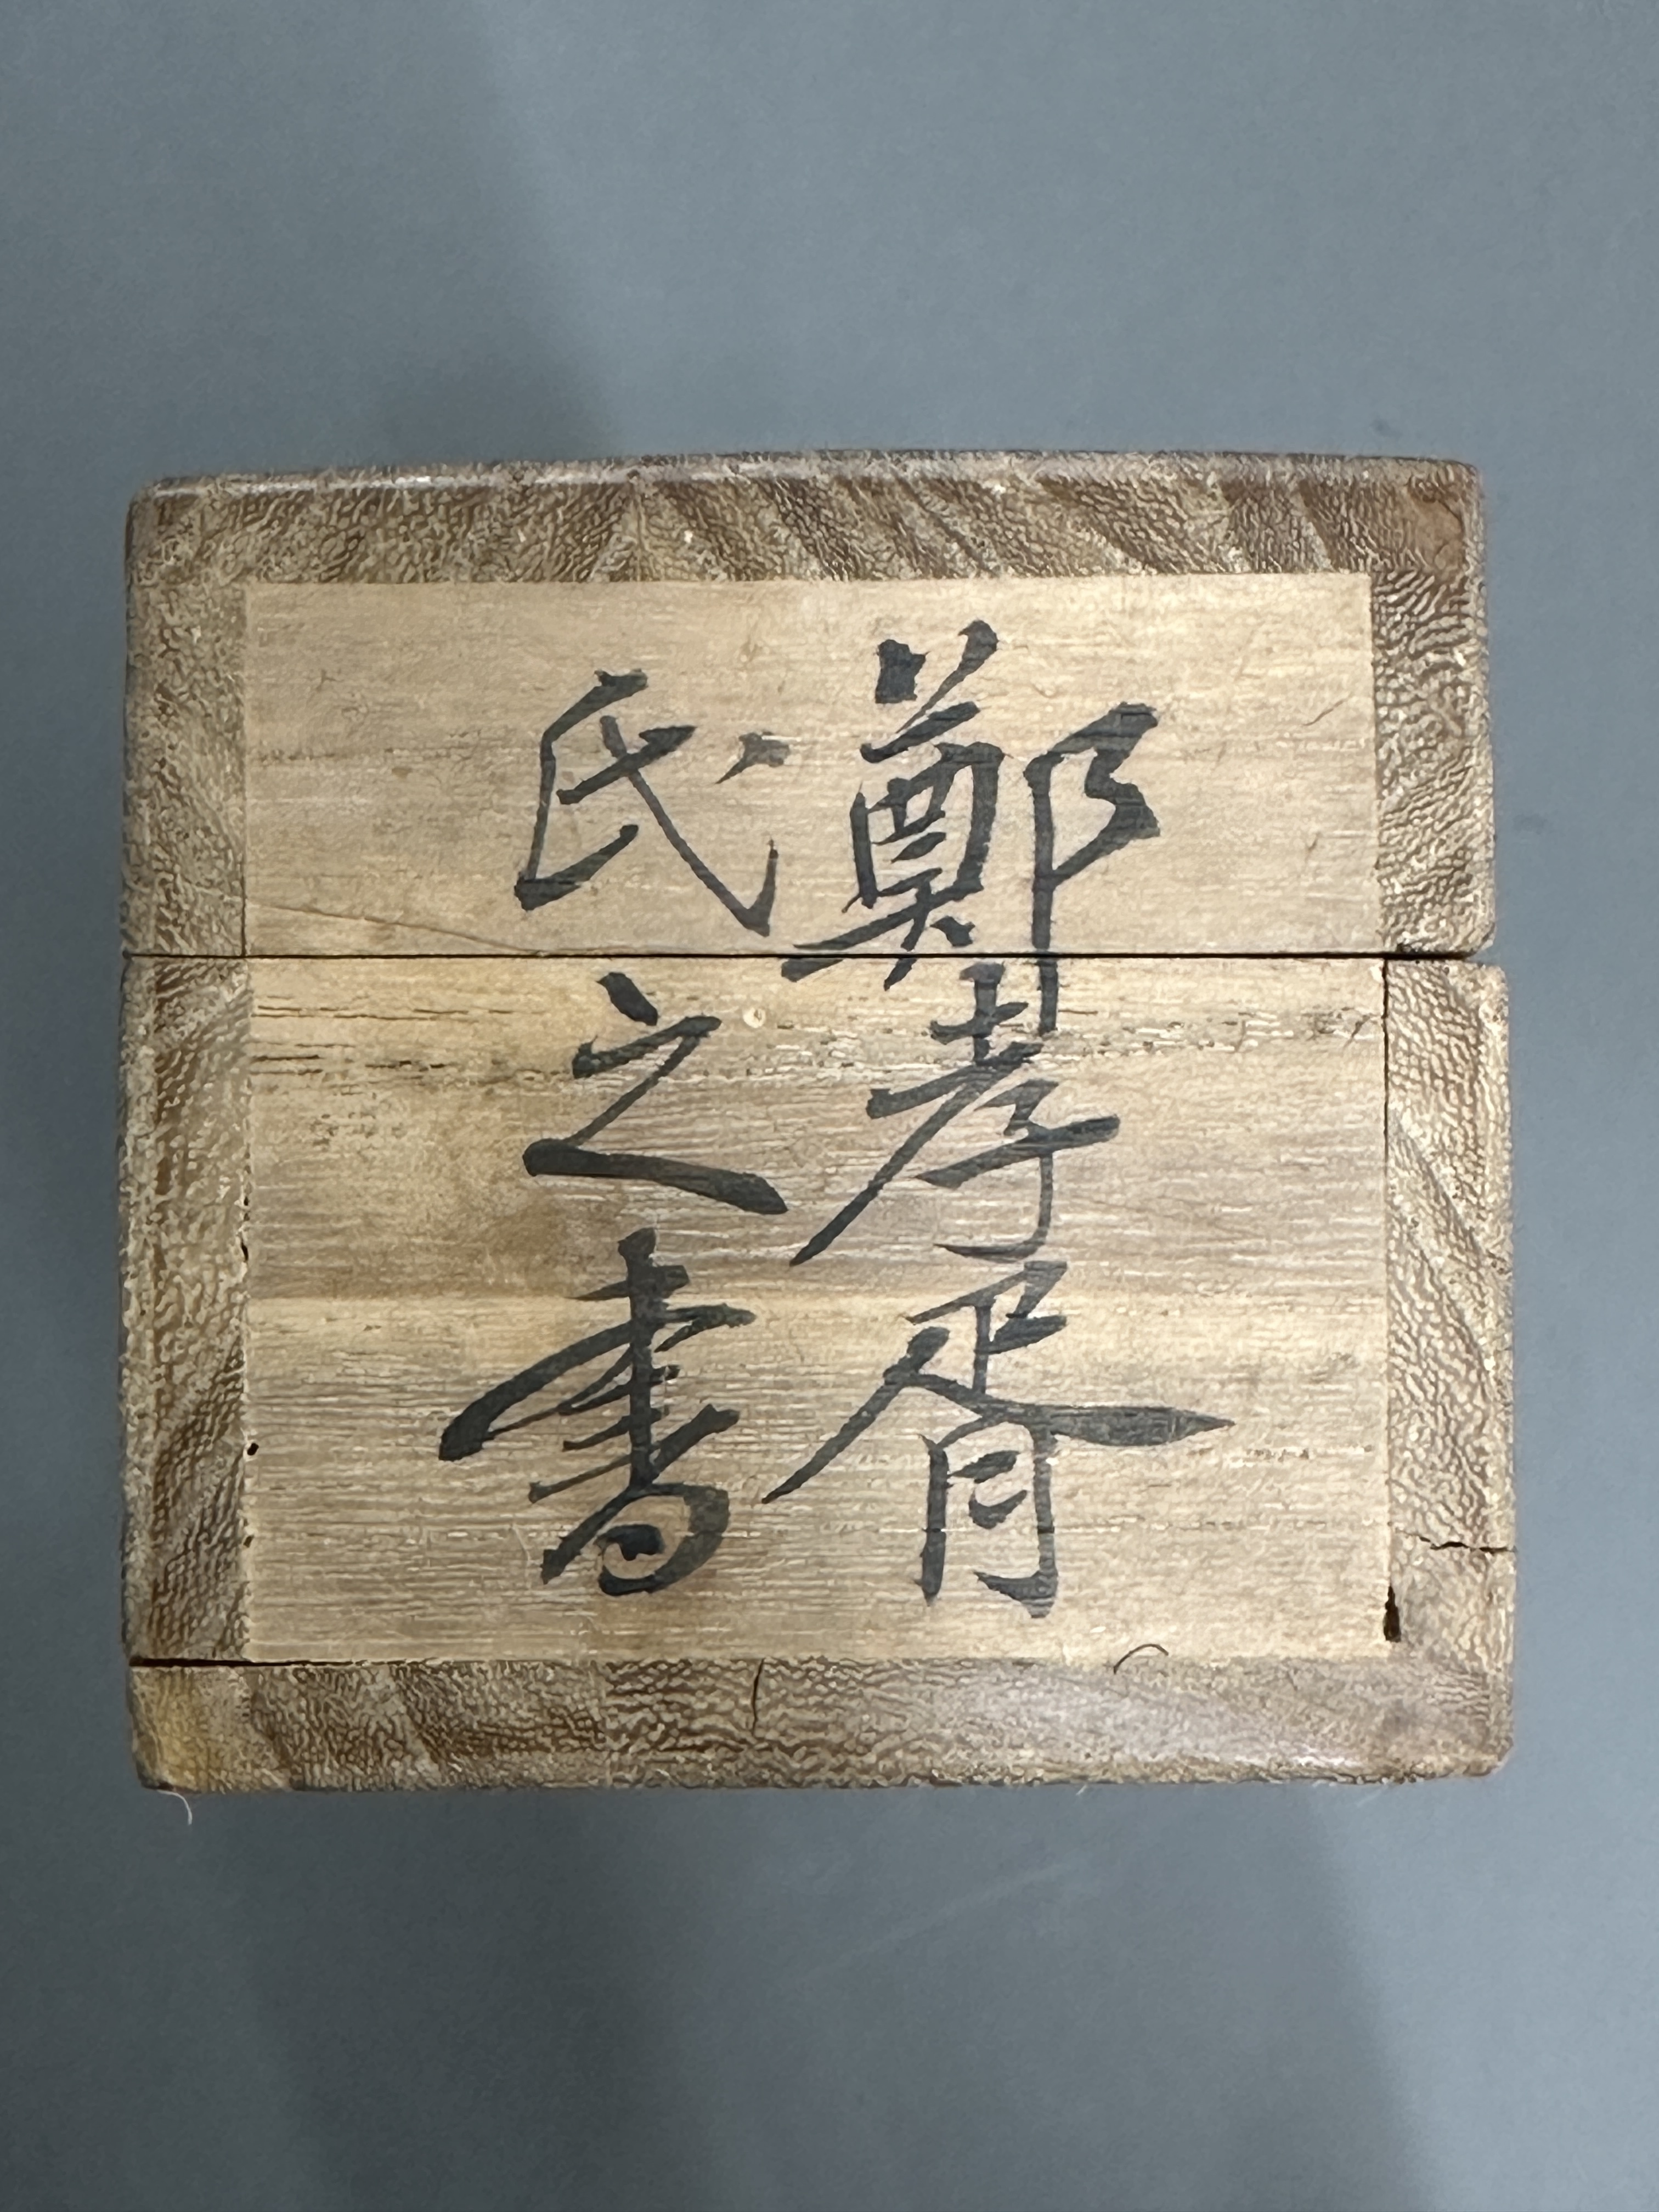 鄭孝胥
氏之書